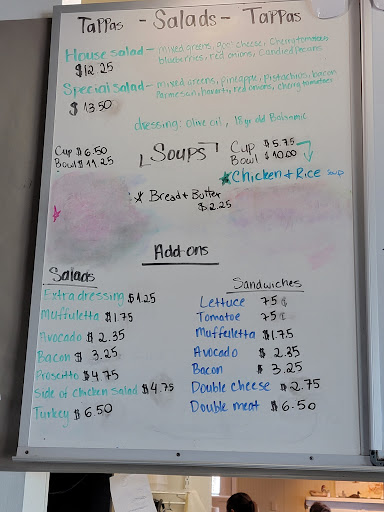 Tappas - Salads - Tappas
House salad - mixed greens, goat cheese, Cherry tomatoes
$12.25 blueberries, red onions, candied pecans
Special salad - mixed greens, pineapple, pistachios, bacon
$13.50 Parmesan, havarti, red onions, cherry tomatoes
dressing: olive oil, 18yr old Balsamic
Soups
Cup $6.50
Bowl $11.25
Cup $5.75
Bowl $10.00
Chicken + Rice soup
Bread + Butter
$2.25
Add-ons
Salads
Extra dressing $1.25
Muffuletta $1.75
Avocado $2.35
Bacon $3.25
Proscitto $4.75
Side of chicken salad $4.75
Turkey $6.50
Sandwiches
Lettuce 75¢
Tomatoe 75¢
Muffuletta $1.75
Avocado $2.35
Bacon $3.25
Double cheese $2.75
Double meat $6.50